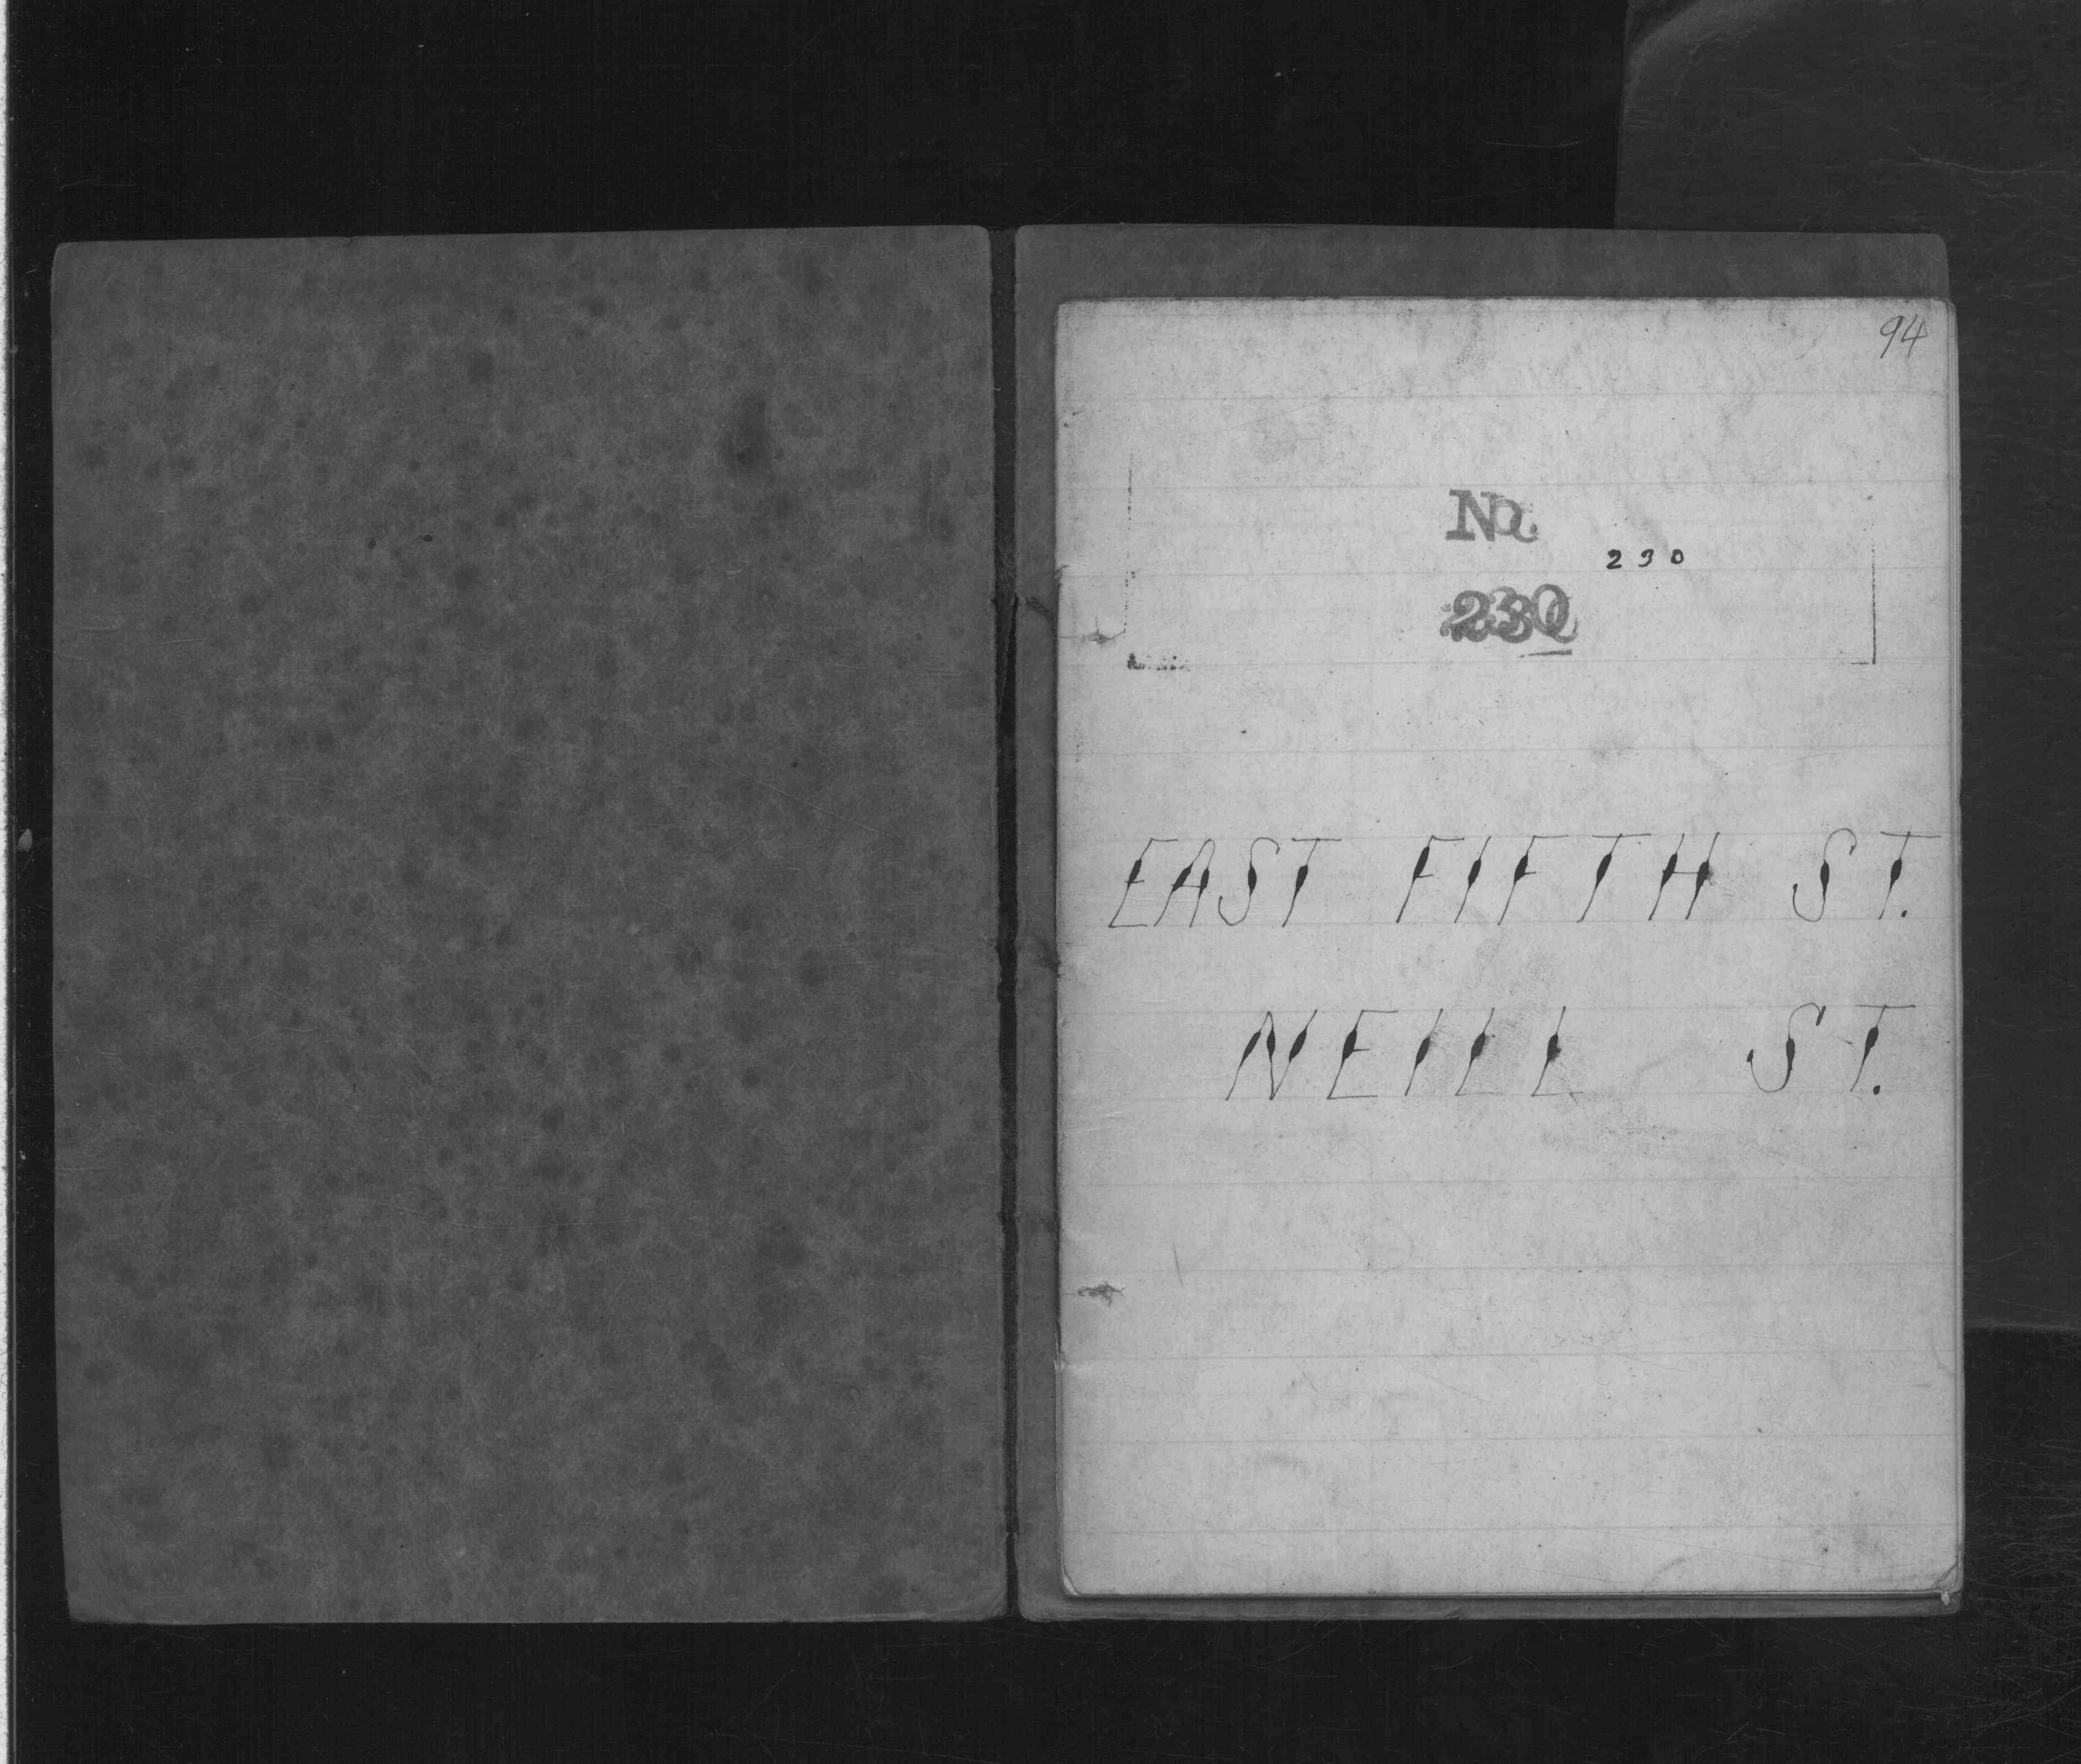 94
No.
230
230
EAST FIFTH ST.
NEILL ST.